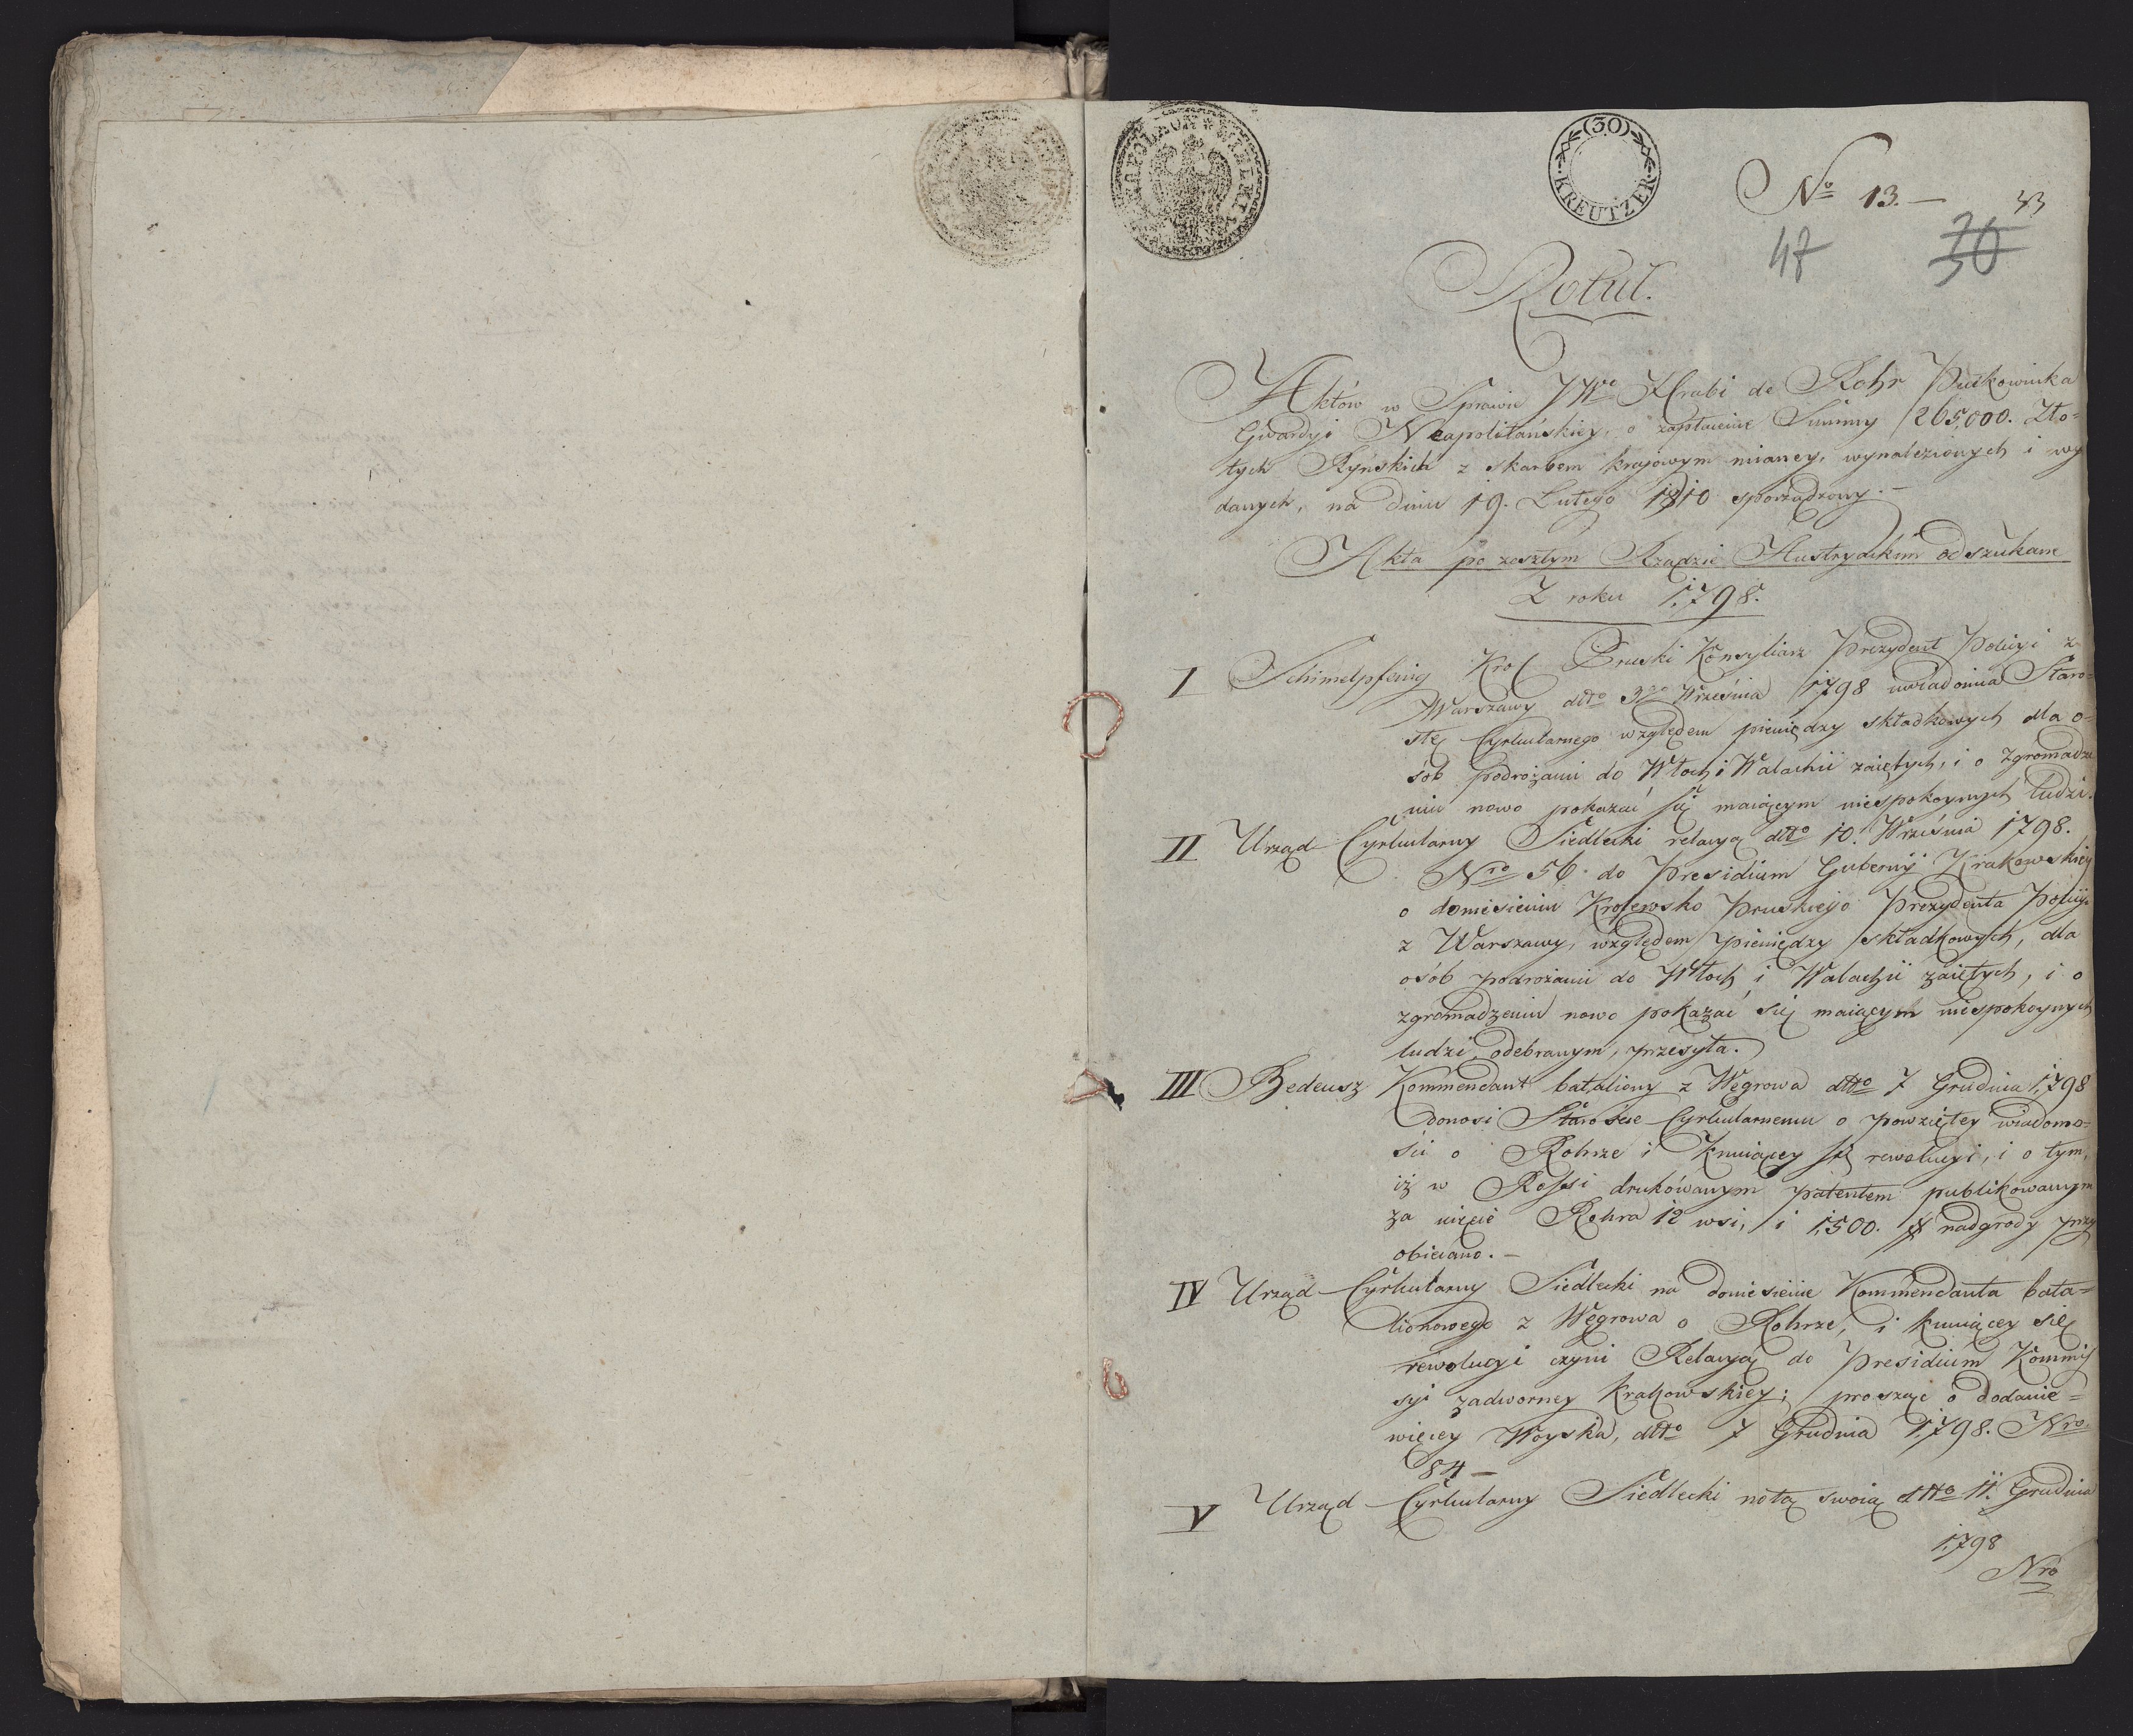 (30)
KREUTZER
Nº 13.—
33
47
36
Rotuł.
Aktów w Sprawie JWº Hrabi de Rohr Pułkownika
Gwardyi Neapolitańskiey, o zapłacenie Summy 265,000. Zło=
tych Ryńskich z skarbem krajowym mianey, wynalezionych i wy
danych, na dniu 19. Lutego 1810 sporządzony.—
Akta po zeszłym Rządzie Austryackim odszukane
Z roku 1798.
I Schimelpfenig Krol Pruski Konsyliarz Prezydent Policyi z
Warszawy dtto 3go Września 1798 uwiadomia Staro=
stę Cyrkularnego względem pieniędzy składkowych dla o=
sób podróżami do Włoch i Walachii zaiętych, i o zgromadze
niu nowo pokazać się maiącym niespokoynych ludzi.
II Urząd Cyrkularny Siedlecki relacyą dtto 10. Września 1798.
Nro 56. do Presidium Gubernij Krakowskiey
o doniesieniu Krolewsko Pruskiego Prezydenta Policyi
z Warszawy, względem pieniędzy składkowych, dla
osób podróżami do Włoch i Walachii zaiętych, i o
zgromadzeniu nowo pokazać się maiącym niespokoynych
ludzi, odebranym, przesyła.
III Bedeusz Kommendant bataliony z Węgrowa dtto 7 Grudnia 1798
donosi Staroście Cyrkularnemu o powziętey wiadomo=
ści o Rohrze i knuiącey się rewolucyi, i o tym,
iż w Rossi drukowanym patentem publikowanym
za uięcie Rohra 12 wsi, i 1500. # nadgrody przy
obiecano.—
IV Urząd Cyrkularny Siedlecki na doniesienie Kommendanta bata=
lionowego z Węgrowa o Rohrze, i knuiącey się
rewolucyi czyni Relacyą do Presidium Kommis
syi zadworney Krakowskiey; prosząc o dodanie=
więcey Woyska, dtto 7 Grudnia 1798. Nro
84—
V Urząd Cyrkularny Siedlecki notą swoią dtto 11. Grudnia
1798
Nro